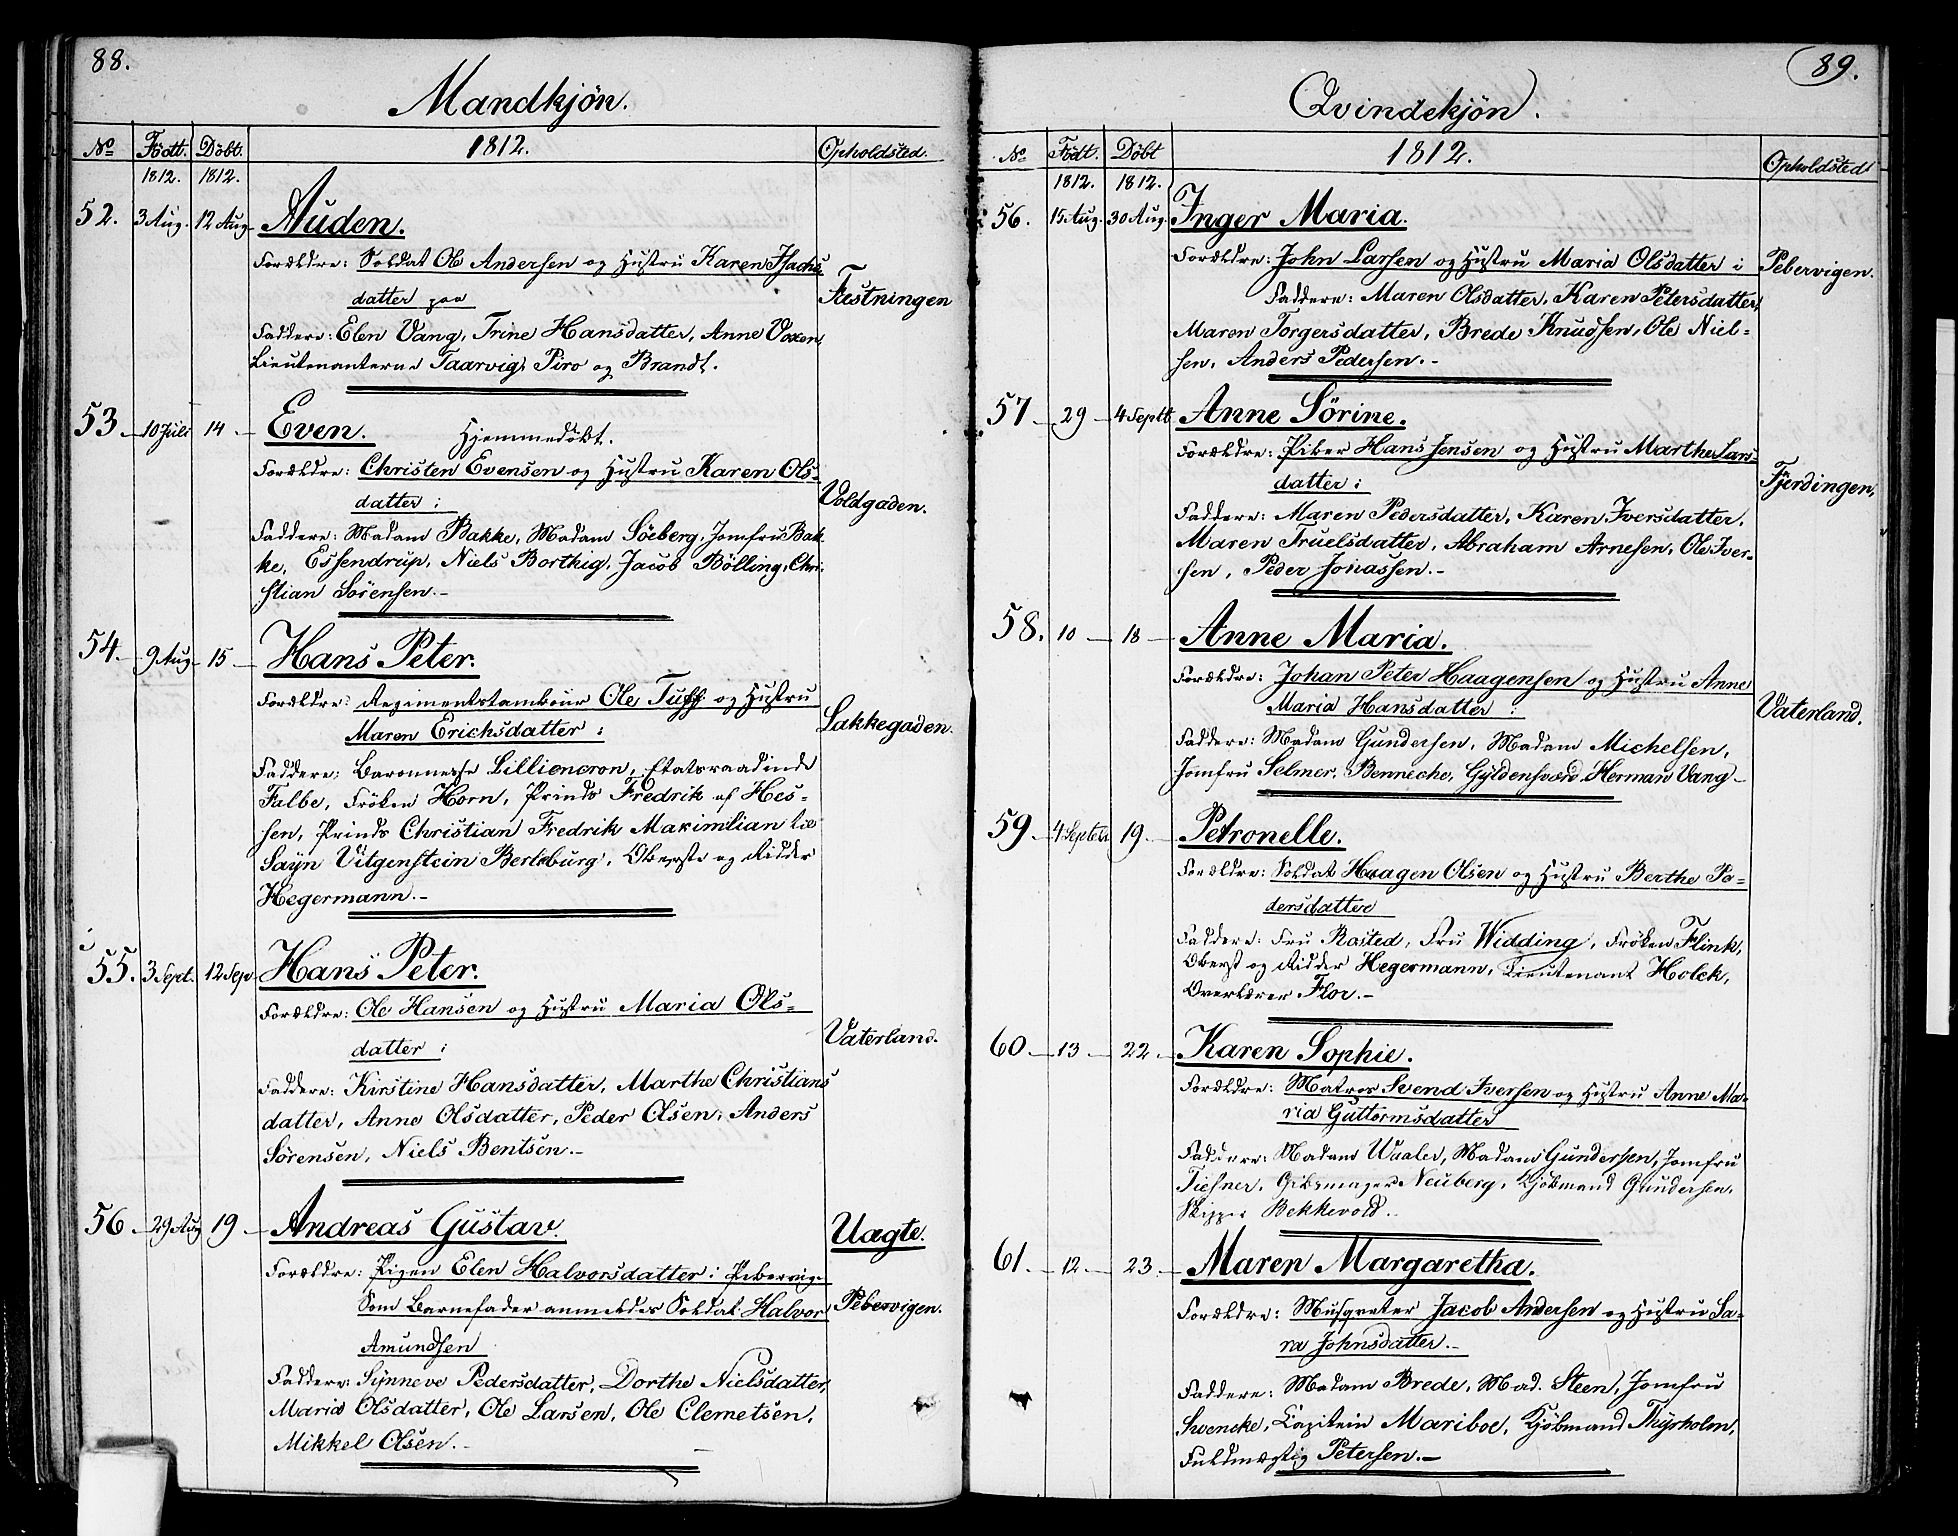 88.
Mandkjön.
No Födt. Döbt. 1812. Opholdsted.
1812. 1812.
52. 3 Aug. 12 Aug Auden.
Forældre: Soldat Ole Andersen og Hustru Karen Isachs
datter paa
Fæstningen
Faddere: Elen Vang, Trine Hansdatter, Anne Voxen,
Lieutenanterne Taarvig, Piro og Brandt.
53. 10 Juli 14 Even. Hjemmedöbt.
Forældre: Christen Evensen og Hustru Karen Ols-
datter i
Voldgaden.
Faddere: Madam Bakke, Madam Söeberg, Jomfru Bak-
ke, Essendrup, Niels Borthig, Jacob Bölling, Chri-
stian Sörensen.-
54. 9 Aug 15 Hans Peter.
Forældre: Regimentstambour Ole Tuff og Hustru
Maren Erichsdatter i
Lakkegaden.
Faddere: Baronnesse Lilliencron, Etatsraadinde
Falbe, Fröken Horn, Prinds Fredrik af Hes-
sen, Prinds Christian Fredrik Maximilian til
Sayn Vitgenstein Berleburg, Oberste og Ridder
Hegermann.-
55. 3 Sept. 12 Sep Hans Peter.
Forældre: Ole Hansen og Hustru Maria Ols-
datter i
Vaterland.
Faddere: Kirstine Hansdatter, Marthe Christians
datter, Anne Olsdatter, Peder Olsen, Anders
Sörensen, Niels Bentsen.-
56 29 Aug 19 Andreas Gustav. Uægte.
Forældre: Pigen Elen Halvorsdatter i Pebervig-
Som Barnefader anmeldes Soldat Halvor
Pebervigen.
Amundsen
Faddere: Synneve Pedersdatter, Dorthe Nielsdatter,
Maria Olsdatter, Ole Larsen, Ole Clemetsen,
Mikkel Olsen.-
89.
Qvindekjön.
No Födt. Döbt 1812. Opholdsted
1812. 1812.
56. 15 Aug. 30 Aug. Inger Maria.
Forældre: John Larsen og Hustru Maria Olsdatter i Pebervigen.
Faddere: Maren Olsdatter, Karen Petersdatter,
Maren Torgersdatter, Brede Knudsen, Ole Niel-
sen, Anders Pedersen.-
57 29 4 Septb Anne Sörine.
Forældre: Piber Hans Jensen og Hustru Marthe Lars-
datter i
Fjerdingen.
Faddere: Maren Pedersdatter, Karen Iversdatter,
Maren Truelsdatter, Abraham Arnesen, Ole Iver-
sen, Peder Jonassen.-
58. 10 18 Anne Maria.
Forældre: Johan Peter Haagensen og Hustru Anne
Maria Hansdatter i
Vaterland.
Faddere: Madam Gundersen, Madam Michelsen,
Jomfru Selmer, Benneche, Gyldensværd Herman Vang-
59 4 Septbr 19 Petronelle.
Forældre: Soldat Haagen Olsen og Hustru Berthe Pe-
dersdatter
Faddere: Fru Rosted, Fru Widding, Fröken Flink,
Oberst og Ridder Hegermann, Lieutenant Holck,
Overlærer Flor.-
60 13 22 Karen Sophie.
Forældre: Matros Svend Iversen og Hustru Anne Ma-
ria Guttormsdatter
Faddere: Madam Waaler, Madam Gundersen, Jomfru
Tiesner, Gibsmager Neuberg, Kjöbmand Gundersen,
Skipper Bekkevold.-
61. 12 23 Maren Margaretha.
Forældre: Musqveter Jacob Andersen og Hustru Sa-
ra Johnsdatter.-
Faddere: Madam Brede, Mad. Steen, Jomfru
Svencke, Capitein Mariboe, Kjöbmand Thyrholm,
Fuldmægtig Petersen.-